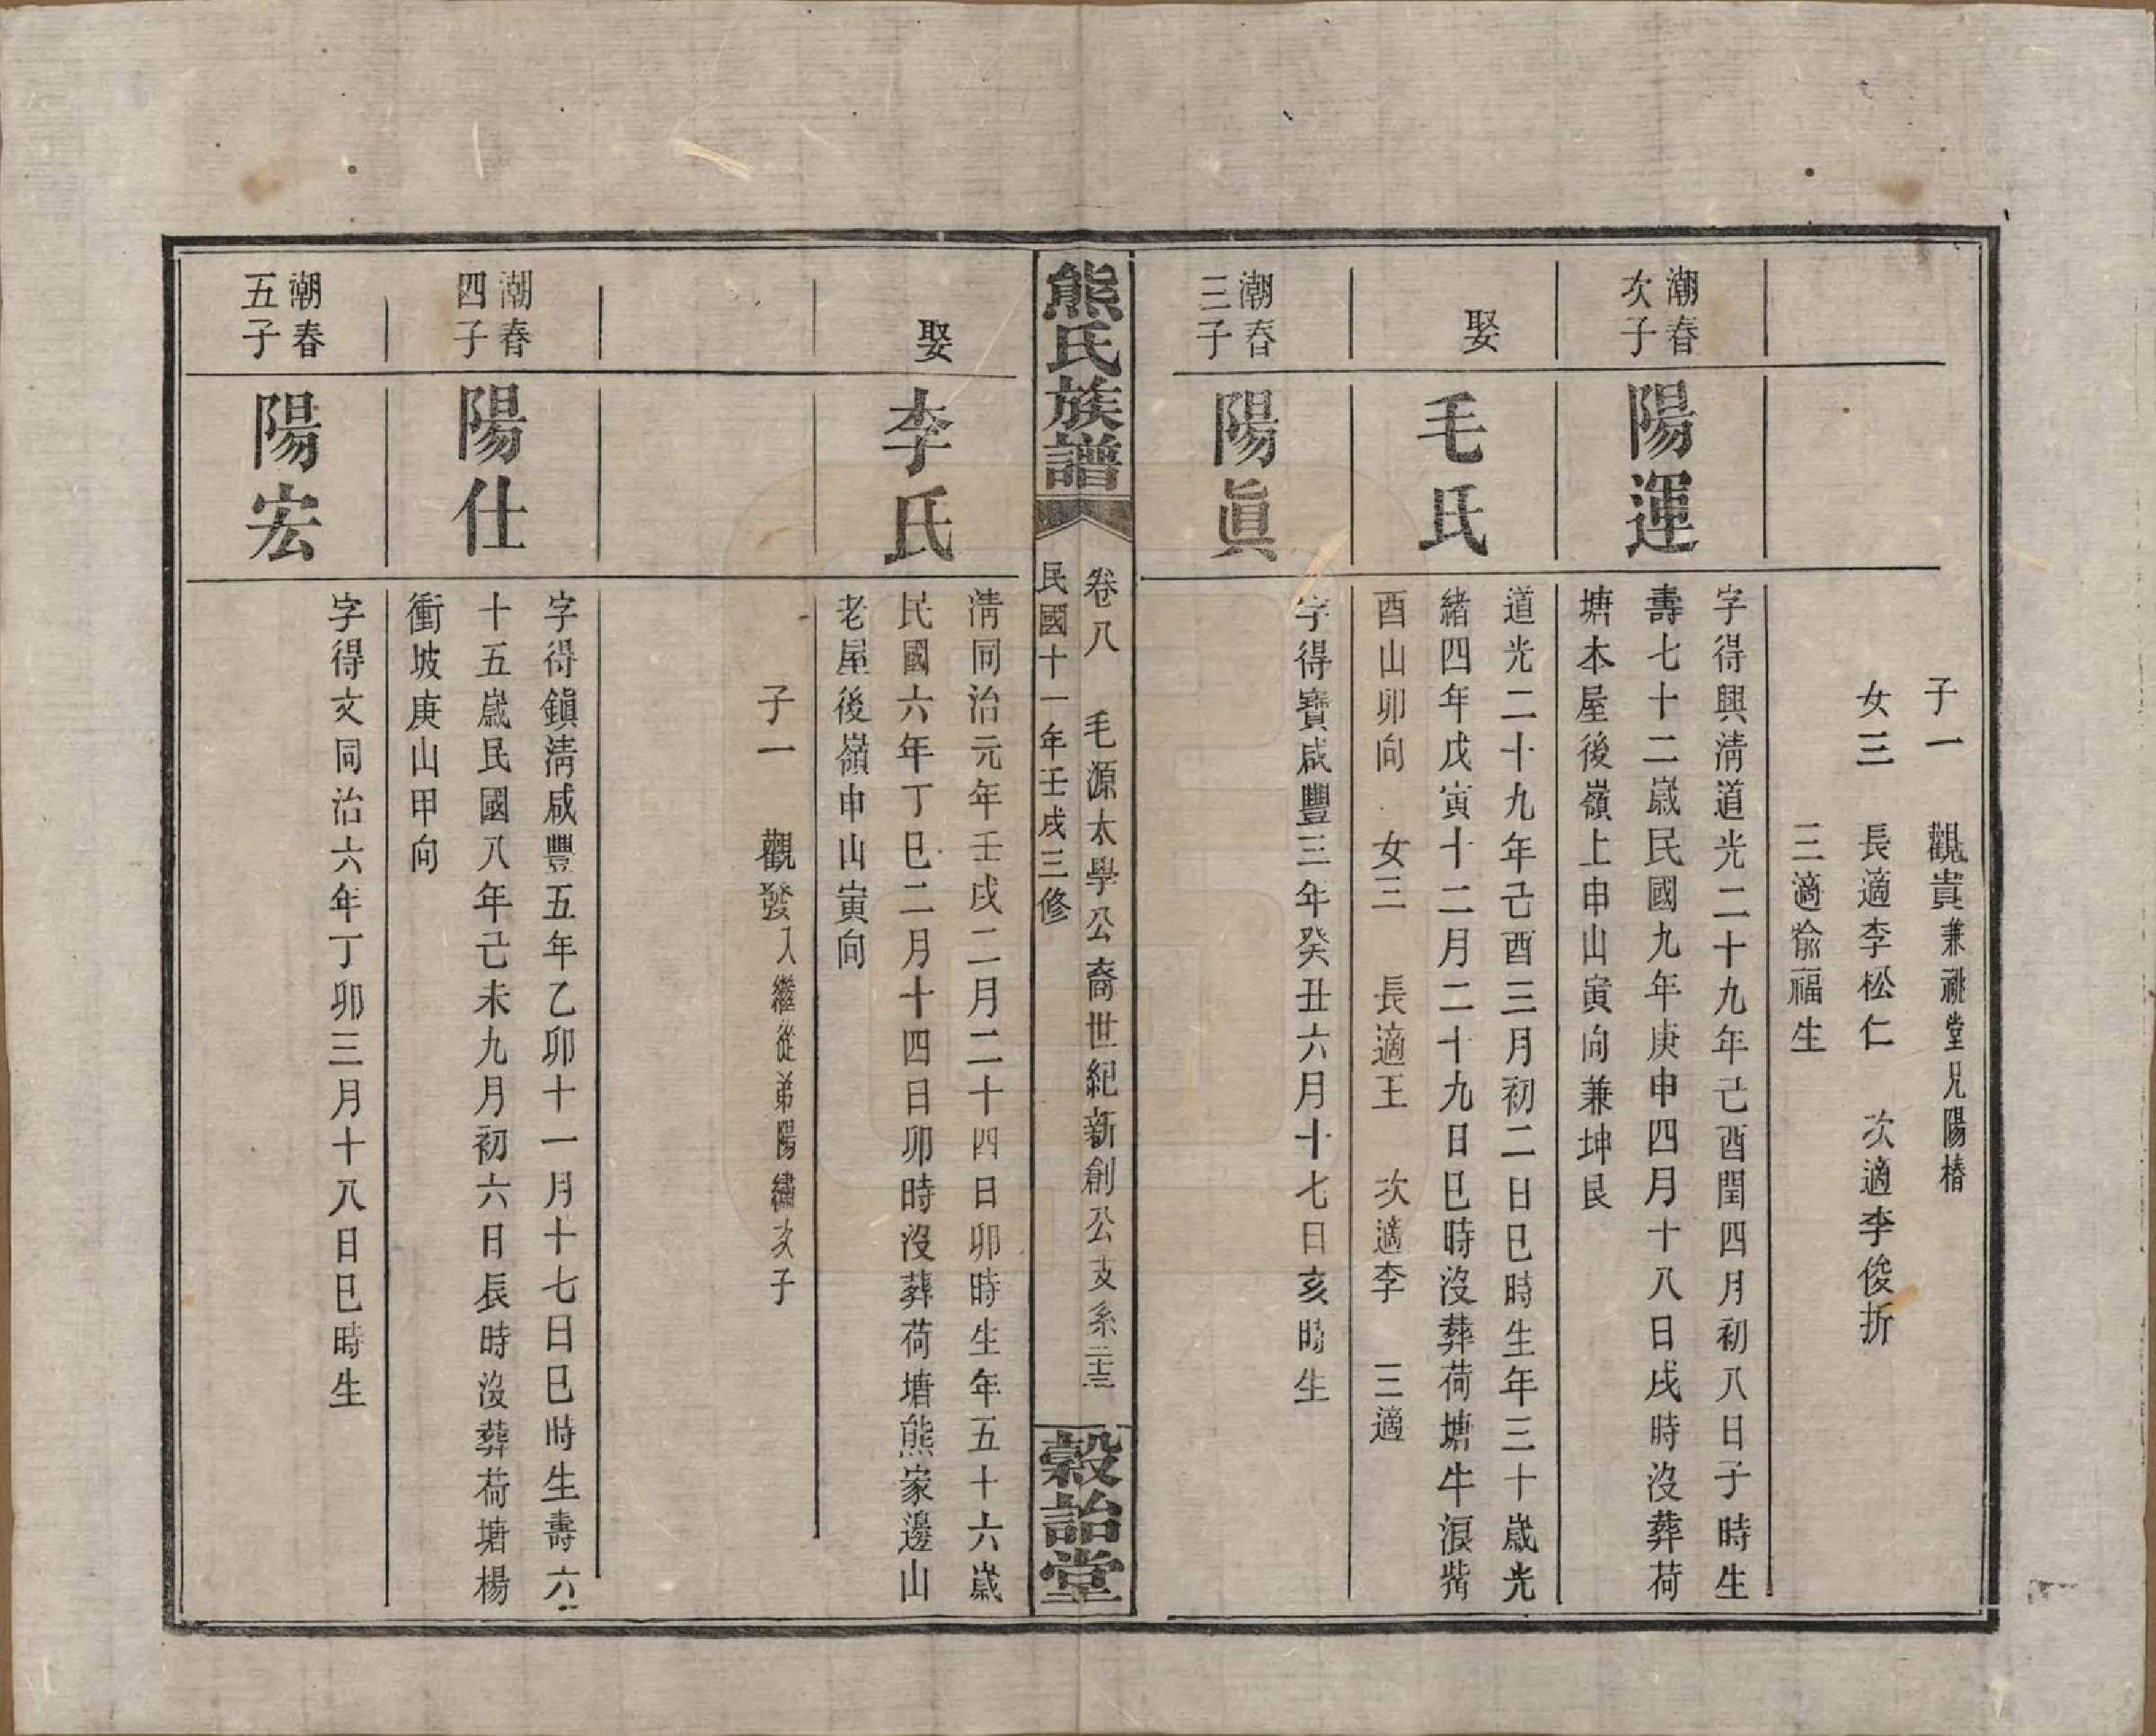 子一　觀貴兼祧堂兄陽椿
女三　長適李松仁　次適李俊折
三適俞福生
潮春
次子
陽運
字得興淸道光二十九年己酉閏四月初八日子時生
壽七十二歲民國九年庚申四月十八日戌時沒葬荷
塘木屋後嶺上申山寅向兼坤艮
娶
毛氏
道光二十九年己酉三月初二日巳時生年三十歲光
緒四年戊寅十二月二十九日巳時沒葬荷塘牛淚嘴
酉山卯向　女三　長適王　次適李　三適
潮春
三子
陽眞
字得寶咸豐三年癸丑六月十七日亥時生
熊氏族譜
卷八　毛源太學公裔世紀新創公支系二十三
民國十一年壬戌三修
穀詒堂
娶
李氏
淸同治元年壬戌二月二十四日卯時生年五十六歲
民國六年丁巳二月十四日卯時沒葬荷塘熊家邊山
老屋後嶺申山寅向
子一　觀發入繼從弟陽繡次子
潮春
四子
陽仕
字得鎭淸咸豐五年乙卯十一月十七日巳時生壽六
十五歲民國八年己未九月初六日長時沒葬荷塘楊
衝坡庚山甲向
潮春
五子
陽宏
字得文同治六年丁卯三月十八日巳時生